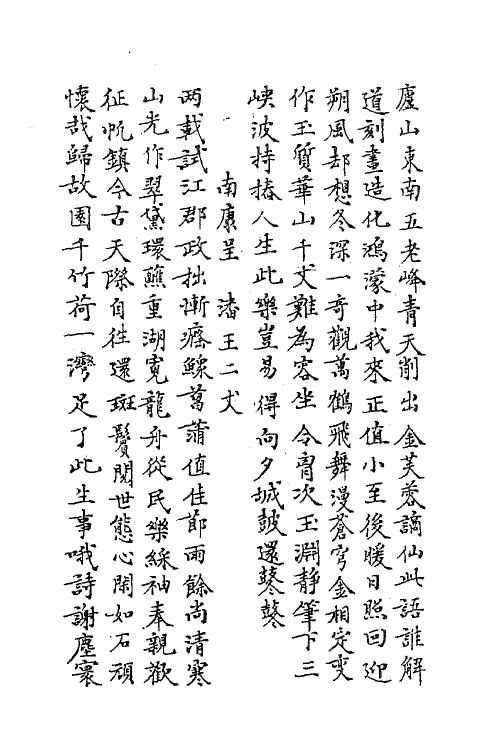 廬山東南五老峰青天削出金芙蓉謫仙此語誰解
道刻畫造化鴻濛中我來正值小至後暖日照回迎
朔風却想冬深一奇觀萬鶴飛舞漫蒼穹金相定变
作玉質華山千丈難為容坐令胷次玉淵靜筆下三
峽波持樁人生此樂豈易得向夕城皷還鼕鼕
南康呈潘王二丈
两載試江郡政拙慚瘝鰥菖蒲值佳節雨餘尚清寒
山光作翠黛環蘸重湖寛龍舟從民樂綵袖奉親歡
征帆鎮今古天際自徃還斑鬢閱世態心閑如石頑
懷哉歸故園千竹荷一灣足了此生事哦詩謝塵寰